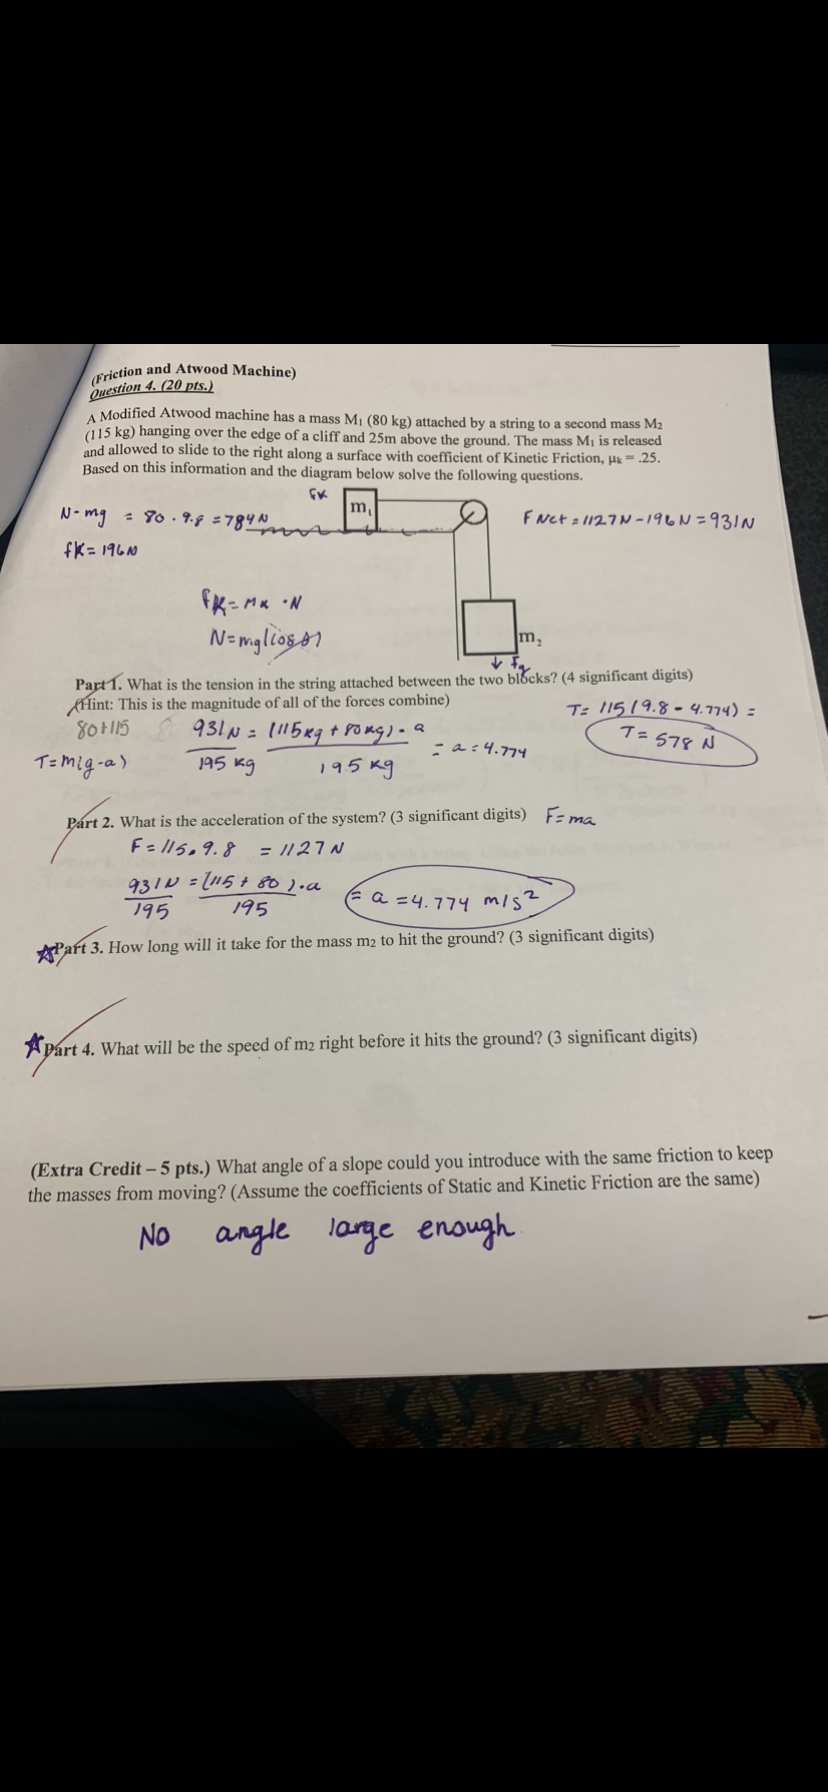 (Friction and Atwood Machine)
Question 4. (20 pts.)
A Modified Atwood machine has a mass M₁ (80 kg) attached by a string to a second mass M₂
(115 kg) hanging over the edge of a cliff and 25m above the ground. The mass M₁ is released
and allowed to slide to the right along a surface with coefficient of Kinetic Friction, μk = .25.
Based on this information and the diagram below solve the following questions.
fk
m₁
N-mg = 80 · 9.8 = 784N
F Net = 1127N - 196N = 931N
fk = 196N
fk = Mk · N
N = mg(cos θ)
m₂
Fg
Part 1. What is the tension in the string attached between the two blocks? (4 significant digits)
(Hint: This is the magnitude of all of the forces combine)
T = 115(9.8 - 4.774) =
80+115
931N = (115kg + 80kg) · a
T = 578 N
195 kg 195 kg
= a = 4.774
T = m(g-a)
Part 2. What is the acceleration of the system? (3 significant digits) F = ma
F = 115 · 9.8 = 1127N
931N = (115 + 80) · a
195 195
= a = 4.774 m/s²
Part 3. How long will it take for the mass m₂ to hit the ground? (3 significant digits)
Part 4. What will be the speed of m₂ right before it hits the ground? (3 significant digits)
(Extra Credit – 5 pts.) What angle of a slope could you introduce with the same friction to keep
the masses from moving? (Assume the coefficients of Static and Kinetic Friction are the same)
No angle large enough